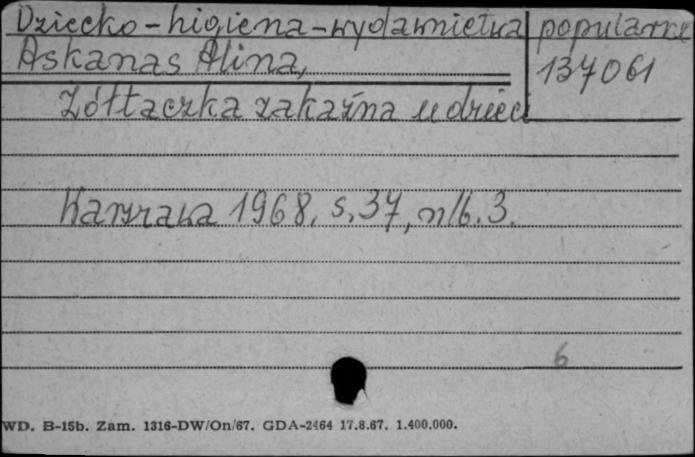 Dziecko-higiena-wydawnictwa popularne
Askanas Alina,
137061
Żółtaczka zakaźna u dzieci
Warszawa 1968, s. 37, nlb. 3.
6
WD. B-15b. Zam. 1316-DW/On/67. GDA-2464 17.8.67. 1.400.000.